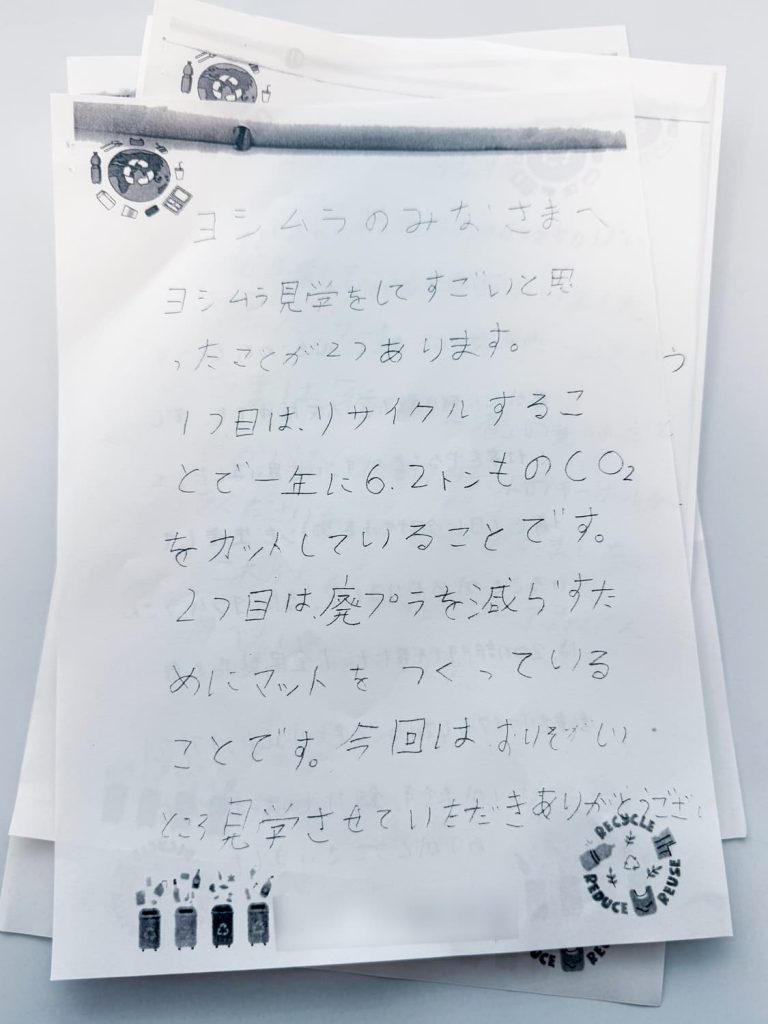 ヨシムラのみなさまへ
ヨシムラ見学をしてすごいと思
ったことが2つあります。
1つ目は、リサイクルするこ
とで一年に6.2トンものCO₂
をカットしていることです。
2つ目は、廃プラを減らすた
めにマットをつくっている
ことです。今回はおいそがしい
ところ見学させていただきありがとうござい
RECYCLE
REDUCE
REUSE
う